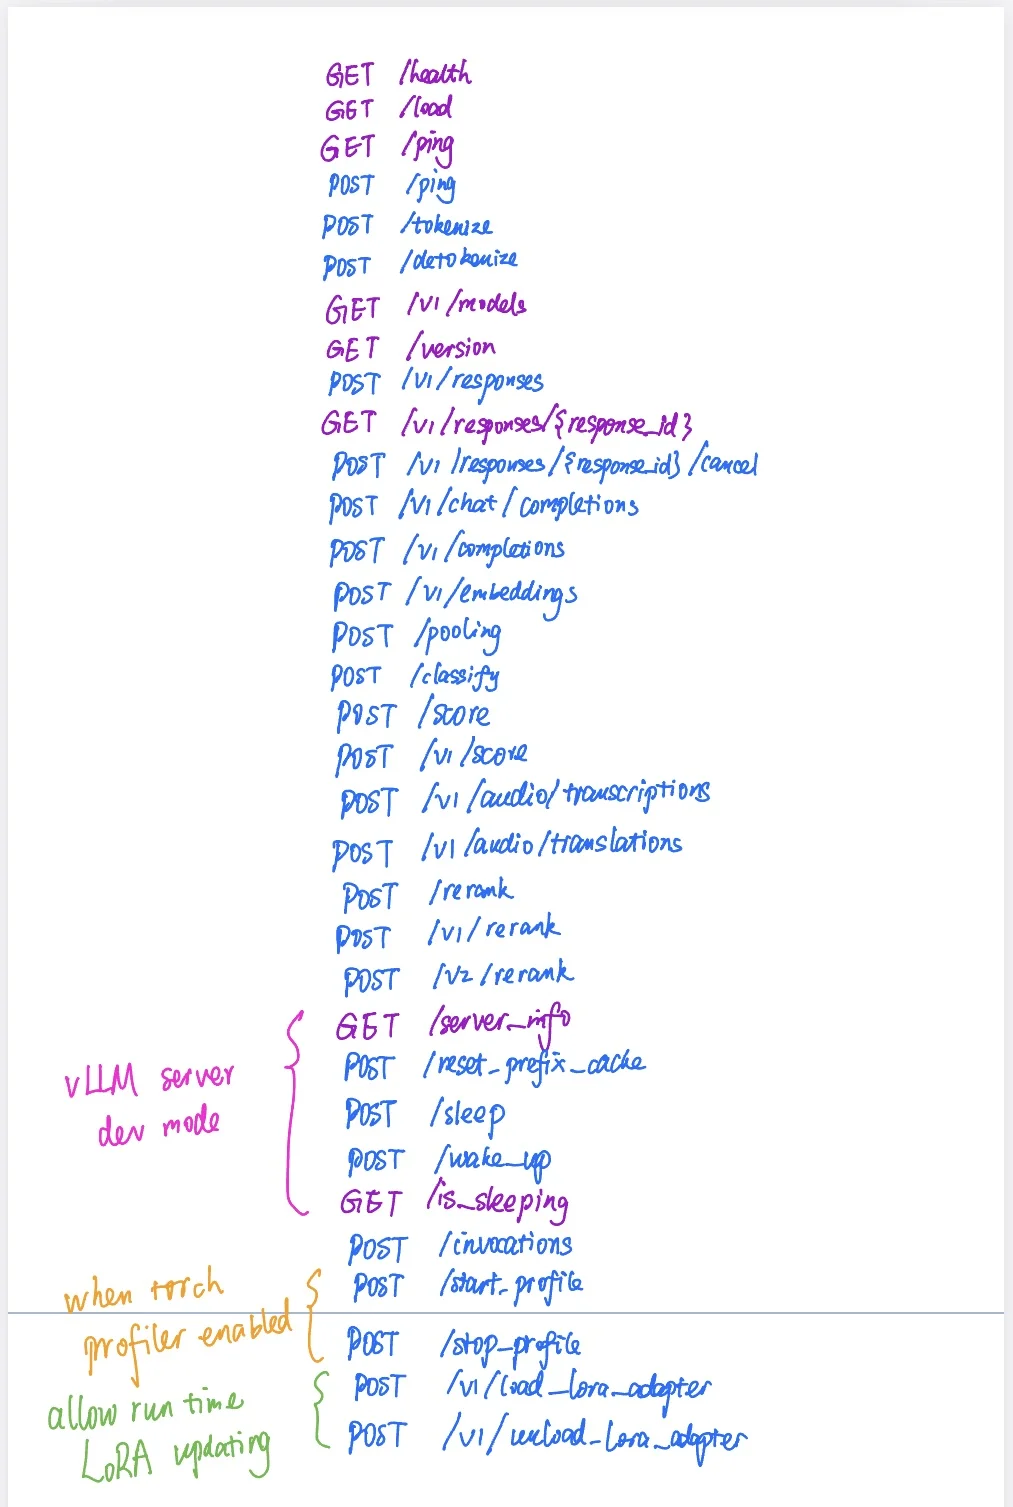 GET /health
GET /load
GET /ping
POST /ping
POST /tokenize
POST /detokenize
GET /v1/models
GET /version
POST /v1/responses
GET /v1/responses/{response_id}
POST /v1/responses/{response_id}/cancel
POST /v1/chat/completions
POST /v1/completions
POST /v1/embeddings
POST /pooling
POST /classify
POST /score
POST /v1/score
POST /v1/audio/transcriptions
POST /v1/audio/translations
POST /rerank
POST /v1/rerank
POST /v2/rerank
vLLM server
dev mode
GET /server_info
POST /reset_prefix_cache
POST /sleep
POST /wake_up
GET /is_sleeping
POST /invocations
when torch
profiler enabled
POST /start_profile
POST /stop_profile
allow run time
LoRA updating
POST /v1/load_lora_adapter
POST /v1/unload_lora_adapter